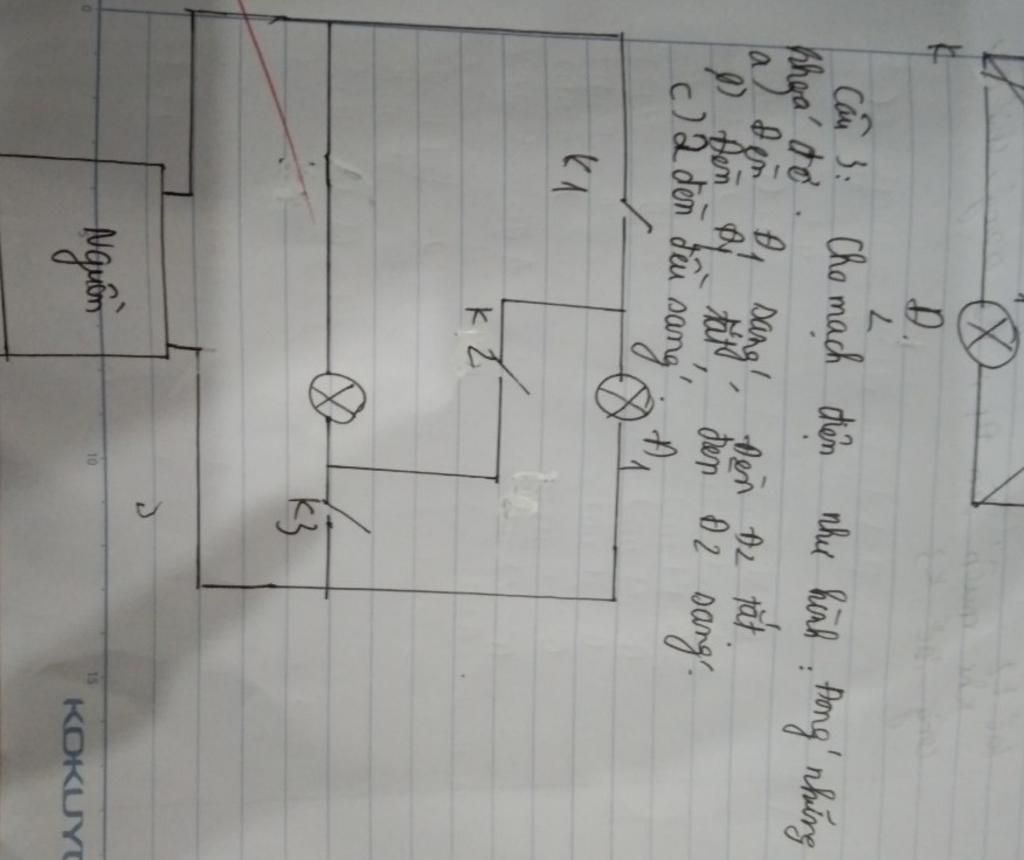 K
Đ
2
Câu 3: Cho mạch điện như hình : Đóng những
khoá để.
a) Đèn Đ1 sáng, Đèn Đ2 tắt
b) Đèn Đ1 tắt, đèn Đ2 sáng.
c) 2 đèn đều sáng.
K1
Đ1
K2
K3
Nguồn
0
10
15
KOKUYO